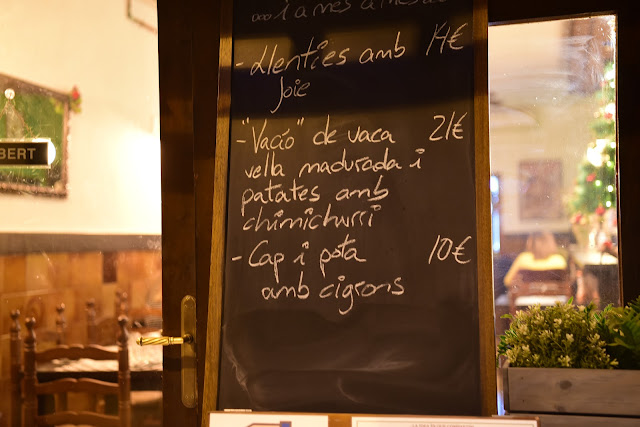 ...i a més a més...
-Llenties amb 14€
Joie
-"Vacío" de vaca 21€
vella madurada i
patates amb
chimichurri
-Cap i pota 10€
amb cigrons
BERT